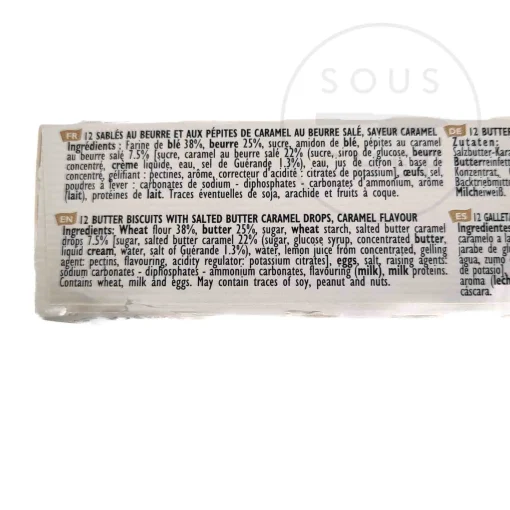 SOUS
FR 12 SABLÉS AU BEURRE ET AUX PÉPITES DE CARAMEL AU BEURRE SALÉ, SAVEUR CARAMEL
Ingrédients : Farine de blé 38%, beurre 25%, sucre, amidon de blé, pépites au caramel
au beurre salé 7.5% [sucre, caramel au beurre salé 22% (sucre, sirop de glucose, beurre
concentré, crème liquide, eau, sel de Guérande 1.3%), eau, jus de citron à base de
concentré, gélifiant : pectines, arôme, correcteur d'acidité : citrates de potassium], œufs, sel,
poudres à lever : carbonates de sodium - diphosphates - carbonates d'ammonium, arôme
(lait), protéines de lait. Traces éventuelles de soja, arachide et fruits à coque.
EN 12 BUTTER BISCUITS WITH SALTED BUTTER CARAMEL DROPS, CARAMEL FLAVOUR
Ingredients: Wheat flour 38%, butter 25%, sugar, wheat starch, salted butter caramel
drops 7.5% [sugar, salted butter caramel 22% (sugar, glucose syrup, concentrated butter,
liquid cream, water, salt of Guérande 1.3%), water, lemon juice from concentrate, gelling
agent: pectins, flavouring, acidity regulator: potassium citrates], eggs, salt, raising agents:
sodium carbonates - diphosphates - ammonium carbonates, flavouring (milk), milk proteins.
Contains wheat, milk and eggs. May contain traces of soy, peanut and nuts.
DE 12 BUTTER
Zutaten:
Salzbutter-Kara
Butterreinfett
Konzentrat,
Backtriebmitte
Milcheiweiß.
ES 12 GALLETA
Ingredientes
caramelo a la
jarabe de gl
agua, zumo
de potasio]
aroma (lech
cáscara.